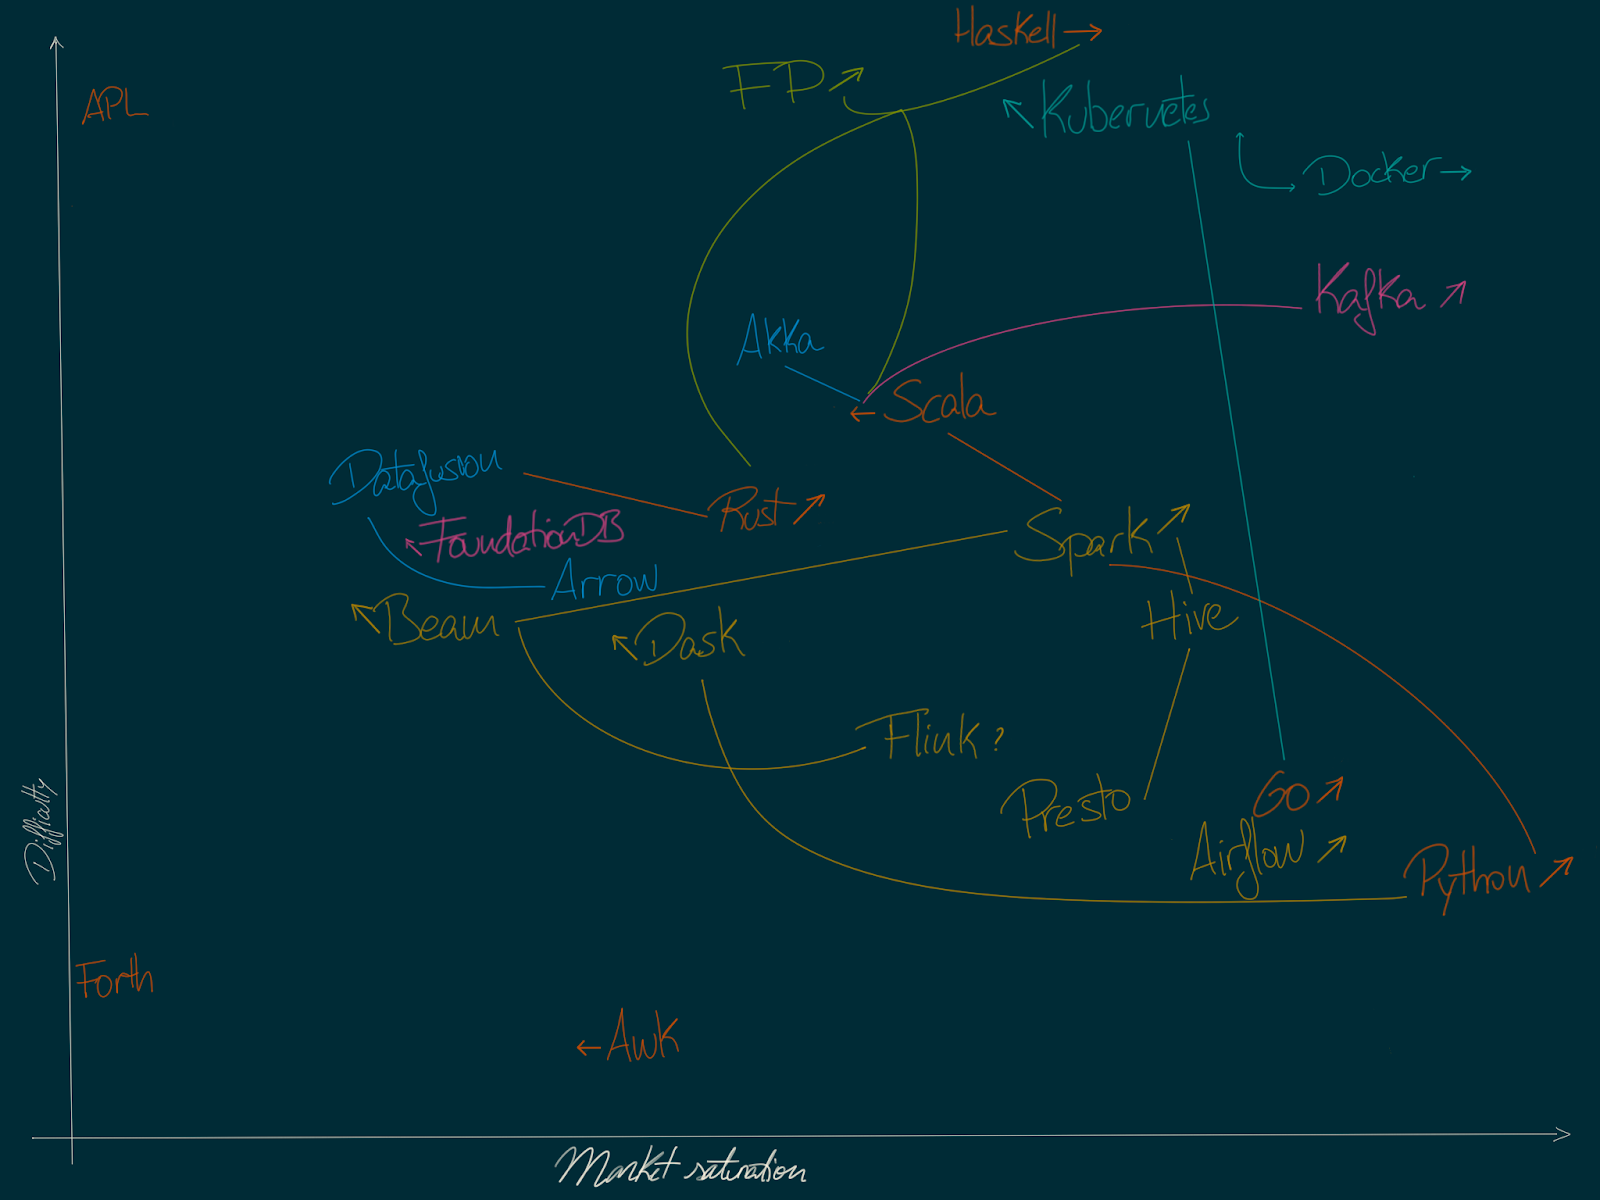 Haskell →
FP ↗
APL
↖ Kubernetes
Docker →
Kafka ↗
Akka
← Scala
Datafusion
Rust ↗
↖ FoundationDB
Spark ↗
Arrow
↖ Beam
↖ Dask
Hive
Flink ?
Presto
Go ↗
Airflow ↗
Python ↗
Difficulty
Forth
← Awk
Market saturation